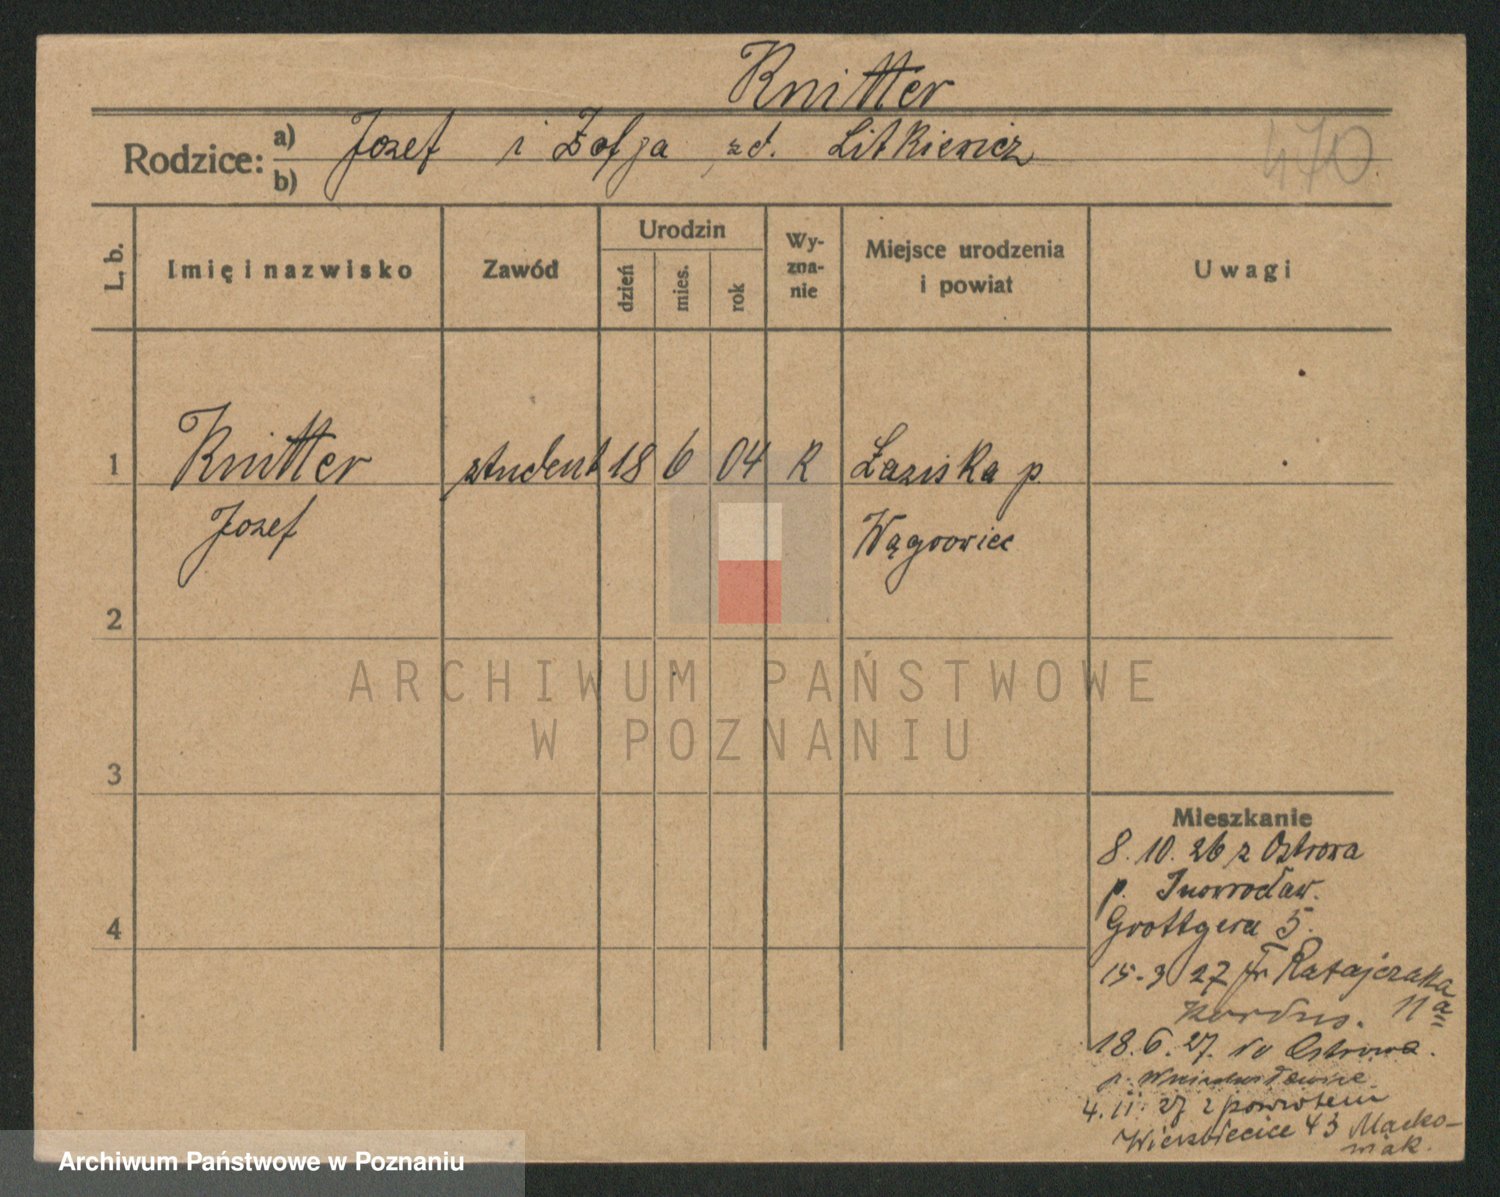 Knitter
Rodzice: a) Jozef i Zofja zd. Litkiewicz
b)
470
L. b.
Imię i nazwisko
Zawód
Urodzin
dzień
mies.
rok
Wy-
zna-
nie
Miejsce urodzenia
i powiat
Uwagi
1 Knitter student 18 6 04 R Łaziska p.
Jozef Wągrowiec
2
3
4
Mieszkanie
8. 10. 26 z Ostrowa
p. Inowrocław.
Grottgera 5.
15. 3 27 Fr Ratajczaka
11a
18. 6. 27. do Ostrowa.
p.
4. 11. 27 z powrotem
Wierzbięcice 43 Maćko-
wiak.
ARCHIWUM PAŃSTWOWE
W POZNANIU
Archiwum Państwowe w Poznaniu